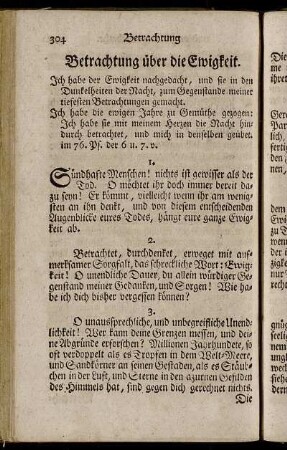 304 Betrachtung
Betrachtung über die Ewigkeit.
Ich habe der Ewigkeit nachgedacht, und sie in den
Dunkelheiten der Nacht, zum Gegenstande meiner
tiefesten Betrachtungen gemacht.
Ich habe die ewigen Jahre zu Gemüthe gezogen:
Ich habe sie mit meinem Herzen die Nacht hin-
durch betrachtet, und mich in denselben geübet.
im 76. Ps. der 6 u. 7. v.
1.
Sündhafte Menschen! nichts ist gewisser als der
Tod. O möchtet ihr doch immer bereit da-
zu seyn! Er kömmt, vielleicht wenn ihr am wenig-
sten an ihn denkt, und von diesem entscheidenden
Augenblicke eures Todes, hängt eure ganze Ewig-
keit ab.
2.
Betrachtet, durchdenket, erweget mit auf-
merksamer Sorgfalt, das schreckliche Wort: Ewig-
keit! O unendliche Dauer, du allein würdiger Ge-
genstand meiner Gedanken, und Sorgen! Wie ha-
be ich dich bisher vergessen können?
3.
O unaussprechliche, und unbegreifliche Unend-
lichkeit! Wer kann deine Grenzen messen, und dei-
ne Abgründe erforschen? Millionen Jahrhundete, so
oft verdoppelt als es Tropfen in dem Welt-Meere,
und Sandkörner an seinen Gestaden, als es Stäub-
chen in der Luft, und Sterne in den azurnen Gefilden
des Himmels hat, sind gegen dich gerechnet nichts.
Die